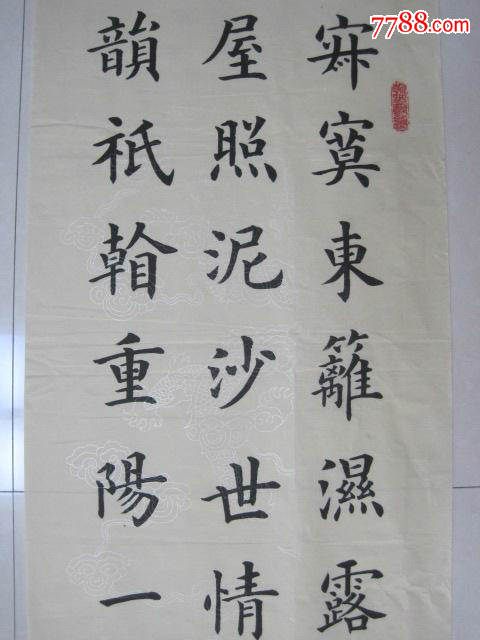 7788.com
寂寞東籬濕露
屋照泥沙世情
韻祇看重陽一